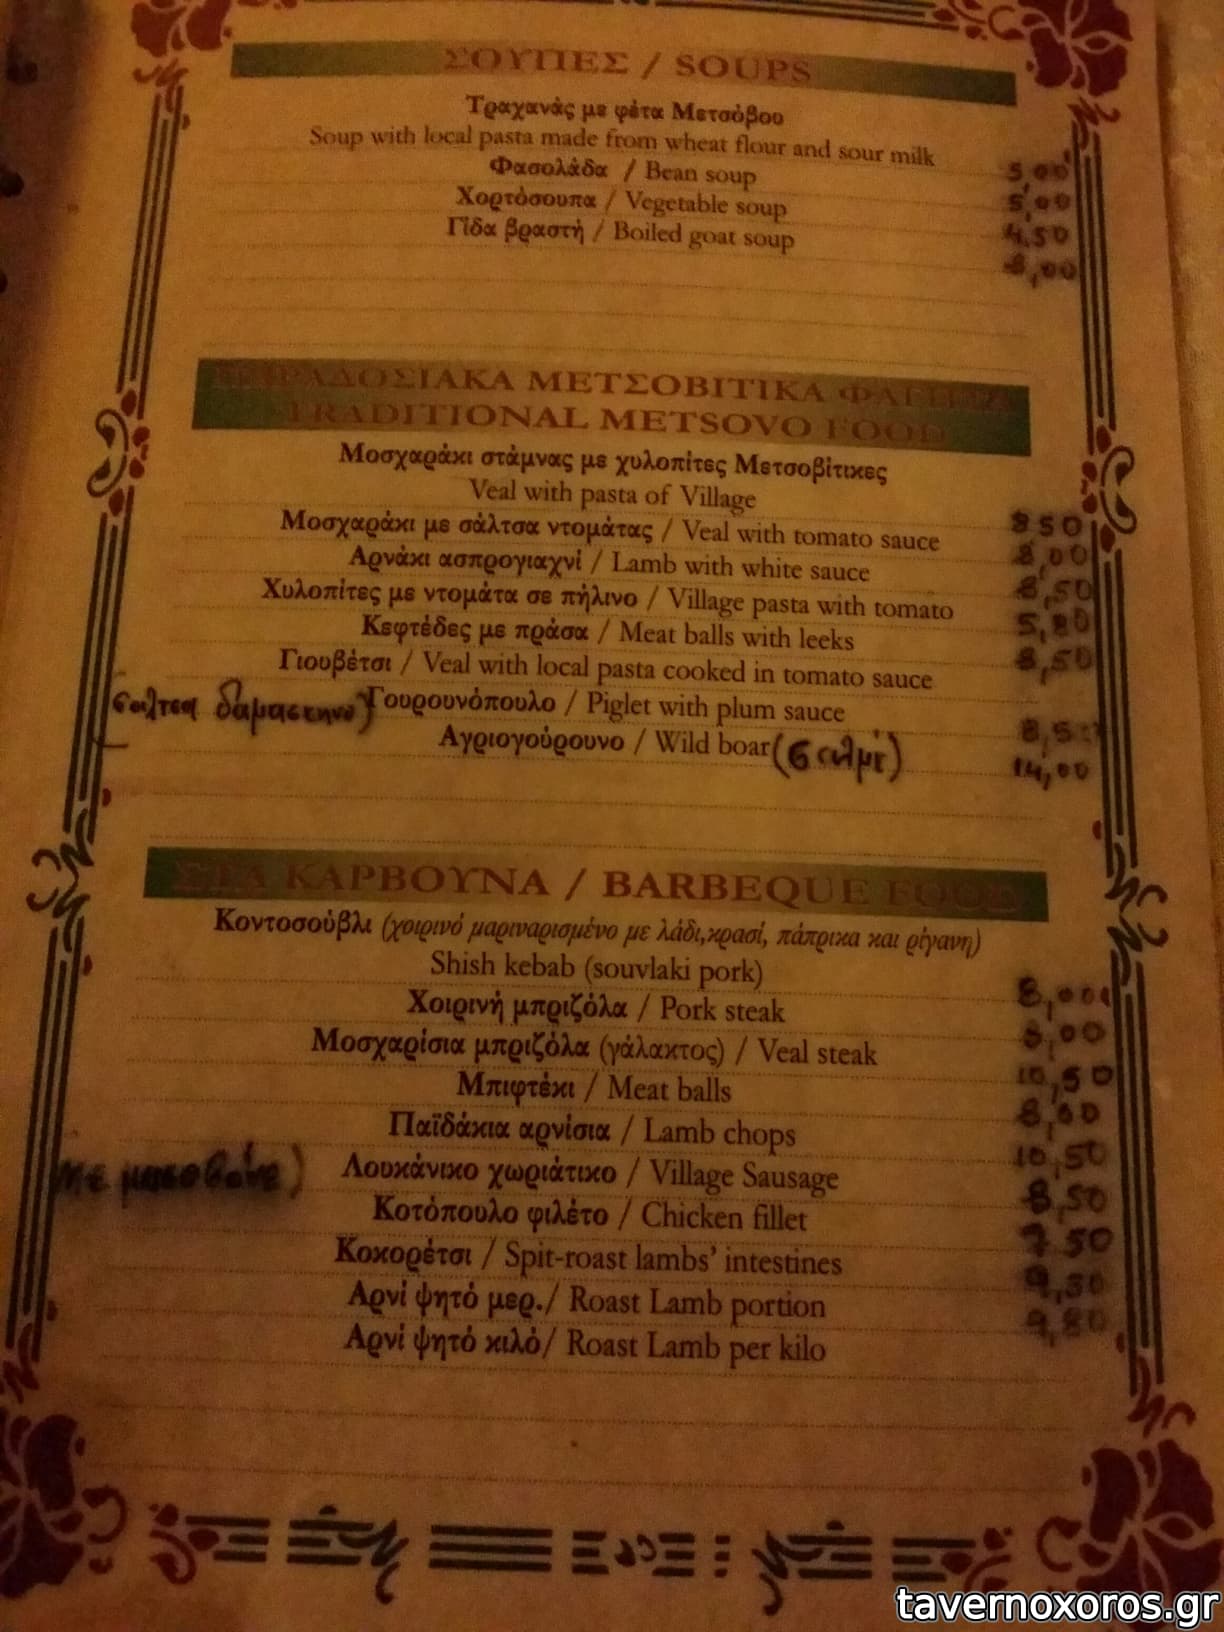 ΣΟΥΠΕΣ / SOUPS
Τραχανάς με φέτα Μετσόβου
Soup with local pasta made from wheat flour and sour milk 5,00
Φασολάδα / Bean soup 5,00
Χορτόσουπα / Vegetable soup 4,50
Γίδα βραστή / Boiled goat soup 8,00
ΠΑΡΑΔΟΣΙΑΚΑ ΜΕΤΣΟΒΙΤΙΚΑ ΦΑΓΗΤΑ
TRADITIONAL METSOVO FOOD
Μοσχαράκι στάμνας με χυλοπίτες Μετσοβίτικες
Veal with pasta of Village 8 50
Μοσχαράκι με σάλτσα ντομάτας / Veal with tomato sauce 8,00
Αρνάκι ασπρογιαχνί / Lamb with white sauce 8,50
Χυλοπίτες με ντομάτα σε πήλινο / Village pasta with tomato 5,80
Κεφτέδες με πράσα / Meat balls with leeks 8,50
Γιουβέτσι / Veal with local pasta cooked in tomato sauce
Γουρουνόπουλο / Piglet with plum sauce 8,5
Αγριογούρουνο / Wild boar 14,00
ΣΤΑ ΚΑΡΒΟΥΝΑ / BARBEQUE FOOD
Κοντοσούβλι (χοιρινό μαριναρισμένο με λάδι,κρασί, πάπρικα και ρίγανη)
Shish kebab (souvlaki pork) 8,00
Χοιρινή μπριζόλα / Pork steak 8,00
Μοσχαρίσια μπριζόλα (γάλακτος) / Veal steak 10,50
Μπιφτέκι / Meat balls 8,00
Παϊδάκια αρνίσια / Lamb chops 10,50
Λουκάνικο χωριάτικο / Village Sausage 8,50
Κοτόπουλο φιλέτο / Chicken fillet 7 50
Κοκορέτσι / Spit-roast lambs' intestines 9,30
Αρνί ψητό μερ./ Roast Lamb portion 9,80
Αρνί ψητό κιλό/ Roast Lamb per kilo
tavernoxoros.gr